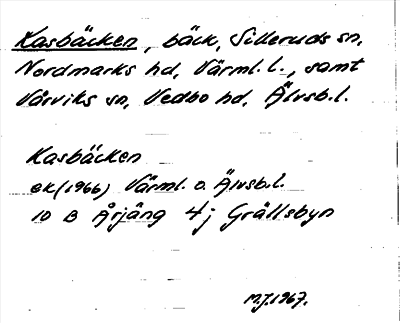 Kasbäcken, bäck, Silleruds sn,
Nordmarks hd, Värml. l., samt
Vårviks sn, Vedbo hd, Älvsb. l.
Kasbäcken
ek (1966) Värml. o. Älvsb. l.
10 B Årjäng 4j Grällsbyn
M.J. 1967.